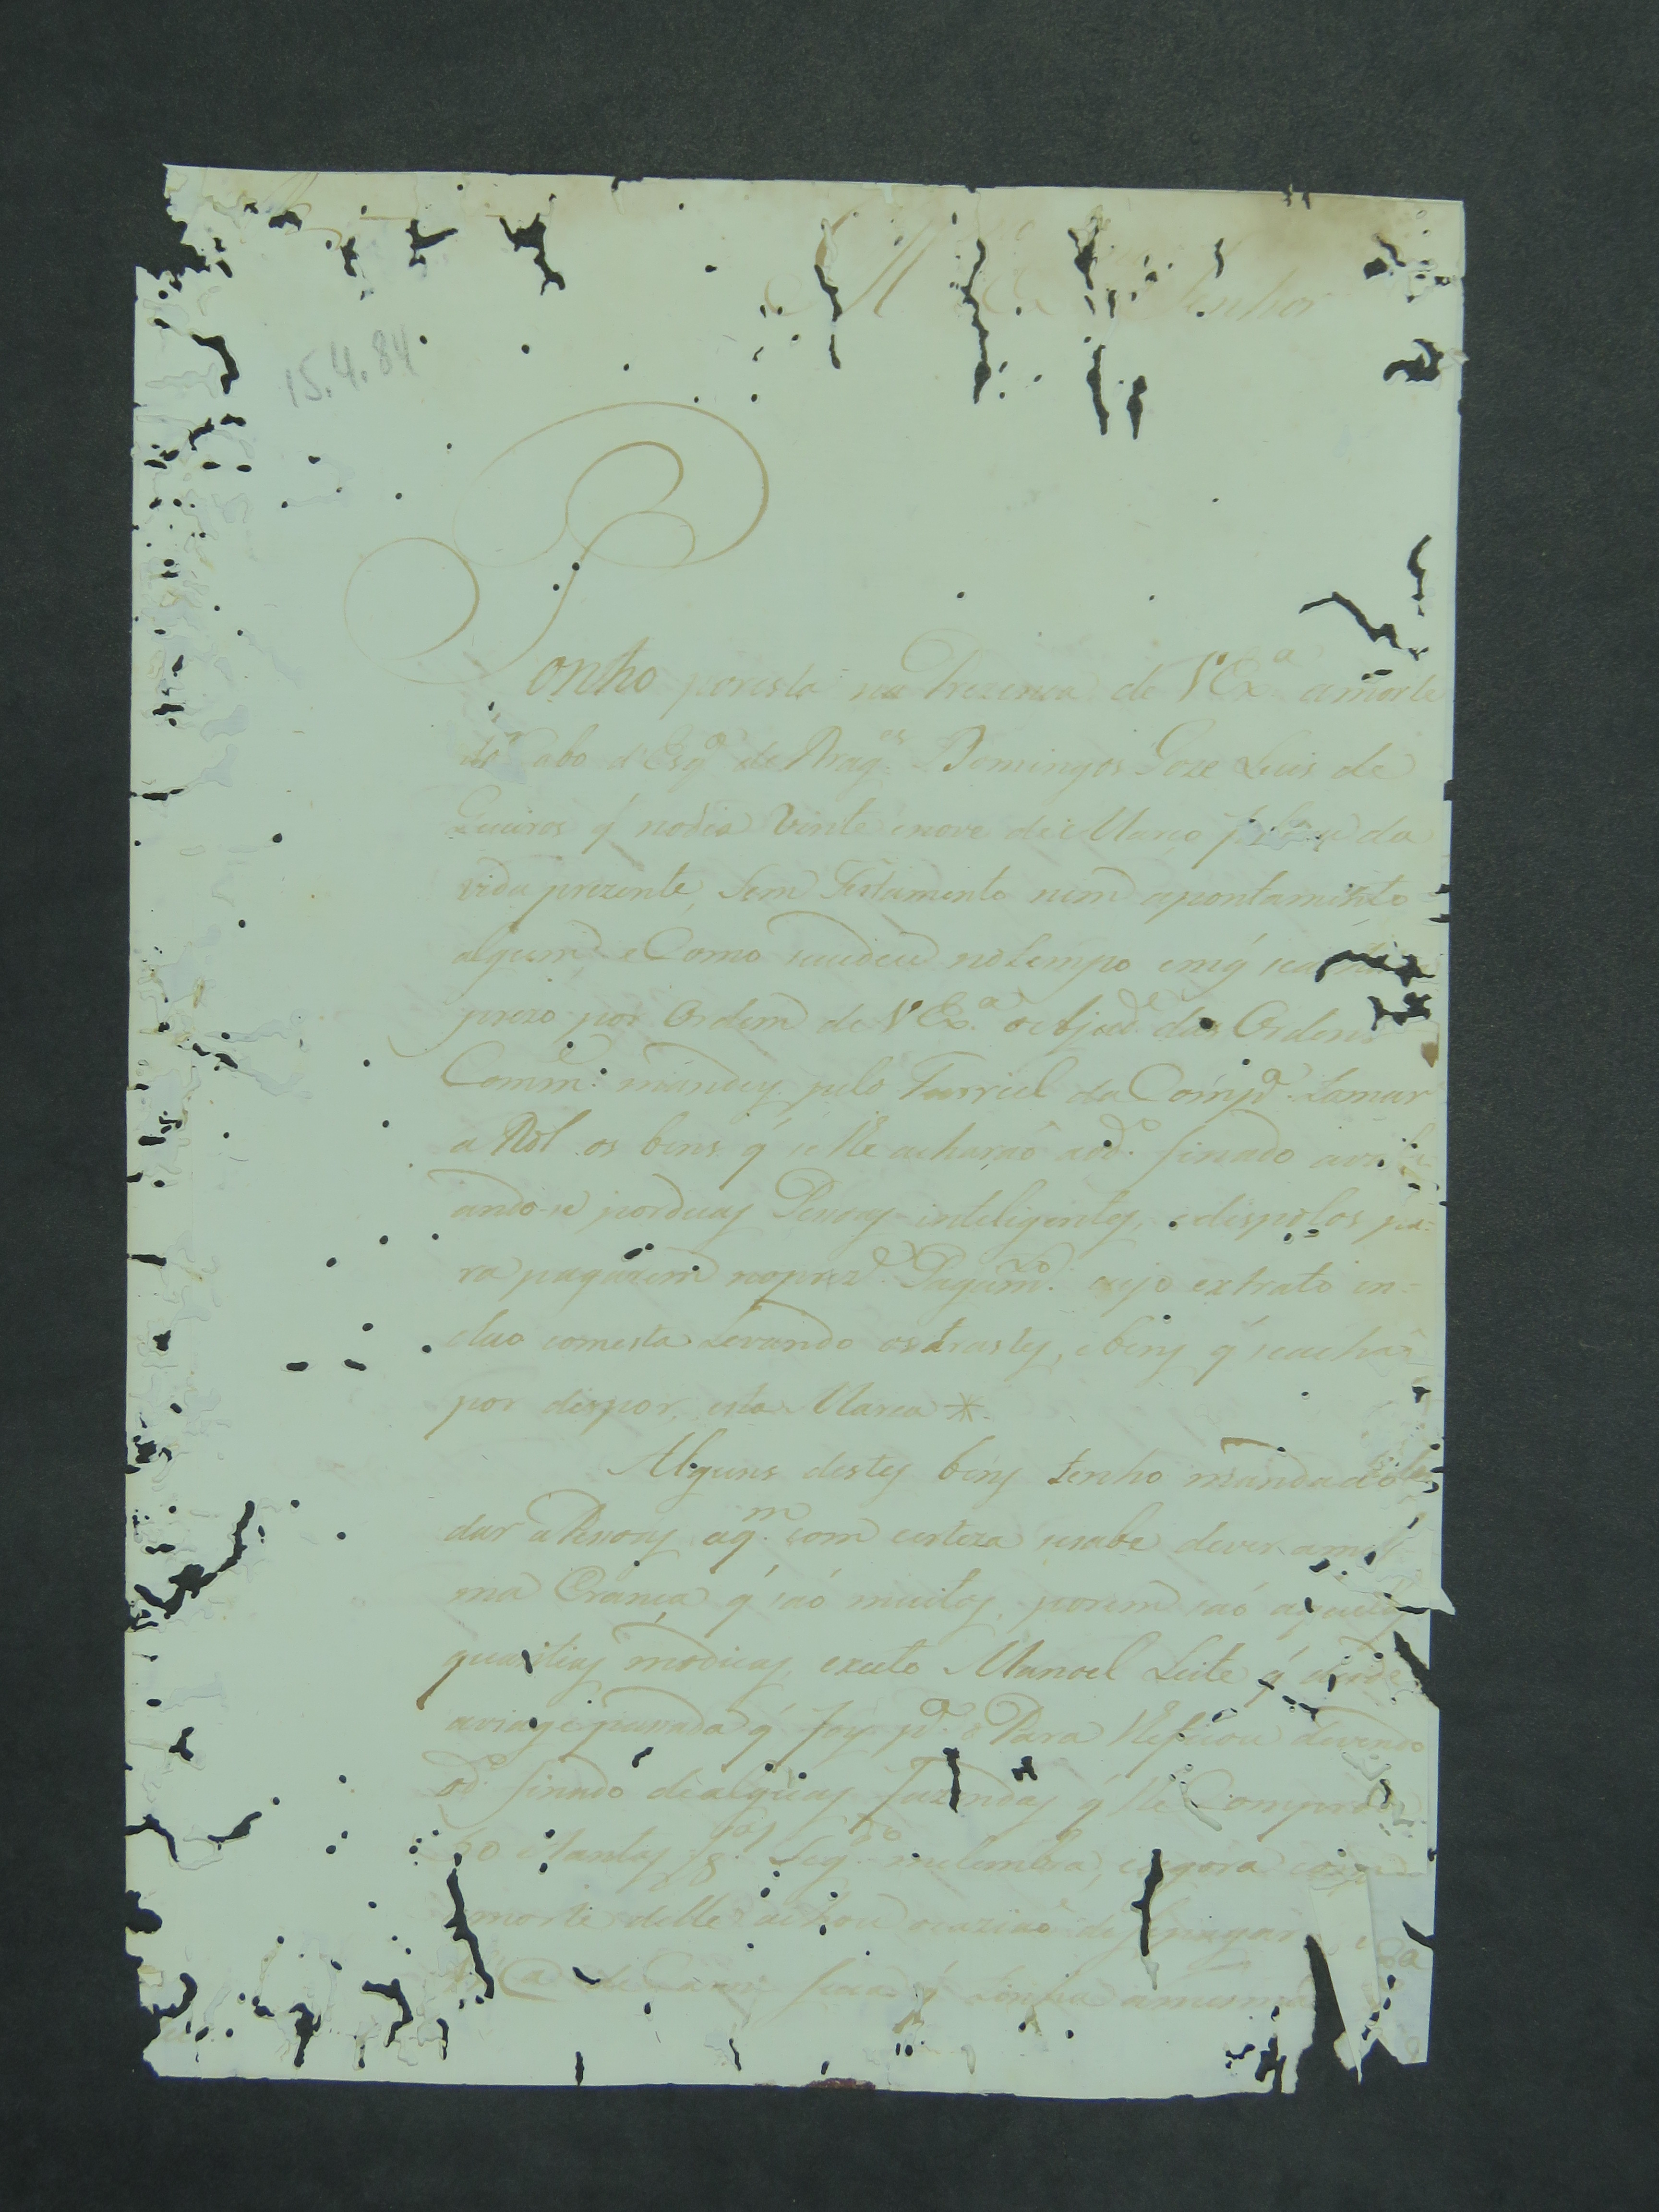 Senhor
15.4.84
Ponho poresta na Prezença de V Exª amorte
do Cabo d'Esqª de Dragºes Domingos Joze Luis de
Queiros q' nodia Vinte enove de Março da
vida prezente, Sem Testamento nem apontamento
algum e Como sucedeu notempo emq'
prezo por Ordem de V Exª das Ordens
Comm. mandey pelo Furriel da Compª. tomar
a Rol os bens q' se lhe acharaõ aodº. finado
ando-se porduas Pesoas inteligentes, edispolos pa-
ra pagarem noprezᵉ. Pagamᵗᵒ. cujo extrato in-
cluo comesta Levando ostrastes, ebens q' seachaõ
por dispor, esta Marca *.
Alguns destes bens tenho mandado
dar aPesoas aqᵐ. com certeza sesabe dever ames
ma Erança q' saõ muitas, porem saõ aquelas
quantias modicas, exceto Manoel Leite q' desde
aviagẽ pasada q' foy pª. o Para lheficou devendo
odº. finado dealgũas fazendas q' lhe Comprou
30 etantas 8ªˢ Segᵈᵒ melembra, eagora com
amorte delle achou ocaziaõ desepagar
q' tinha amesma